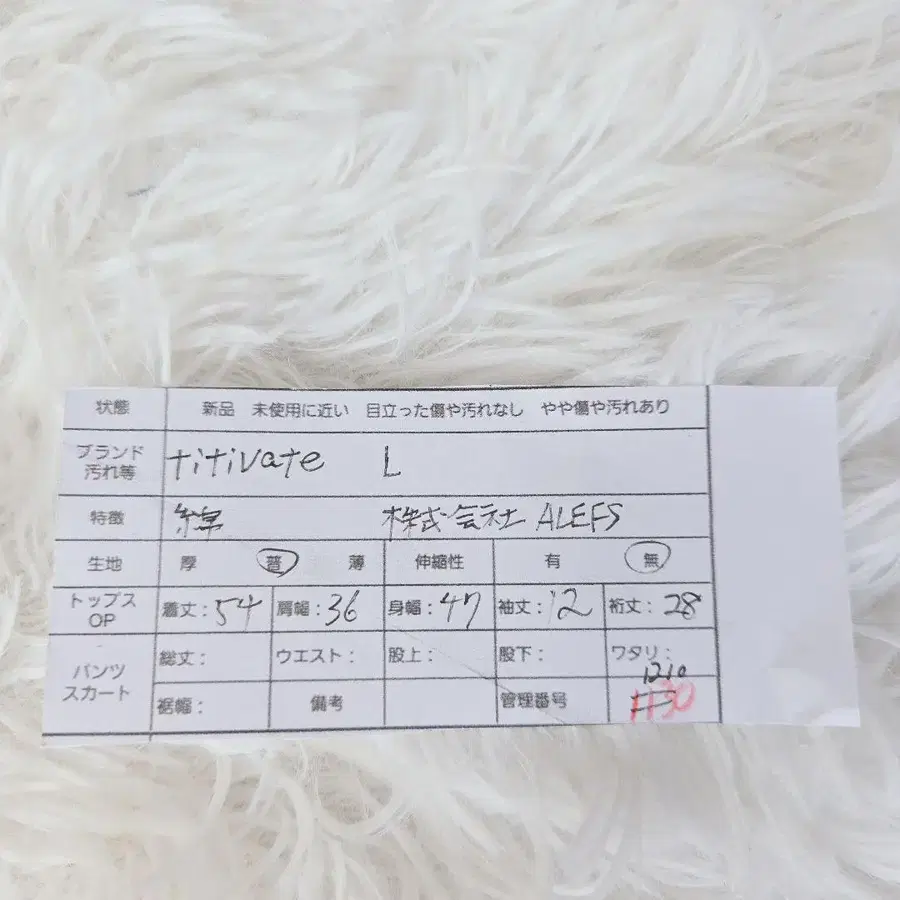 状態 新品 未使用に近い 目立った傷や汚れなし やや傷や汚れあり
ブランド 汚れ等 titivate L
特徴 綿 株式会社 ALEFS
生地 厚 普 薄 伸縮性 有 無
トップス OP 着丈：54 肩幅：36 身幅：47 袖丈：12 裄丈：28
パンツ スカート 総丈： ウエスト： 股上： 股下： ワタリ：
1210
裾幅： 備考 管理番号 1130